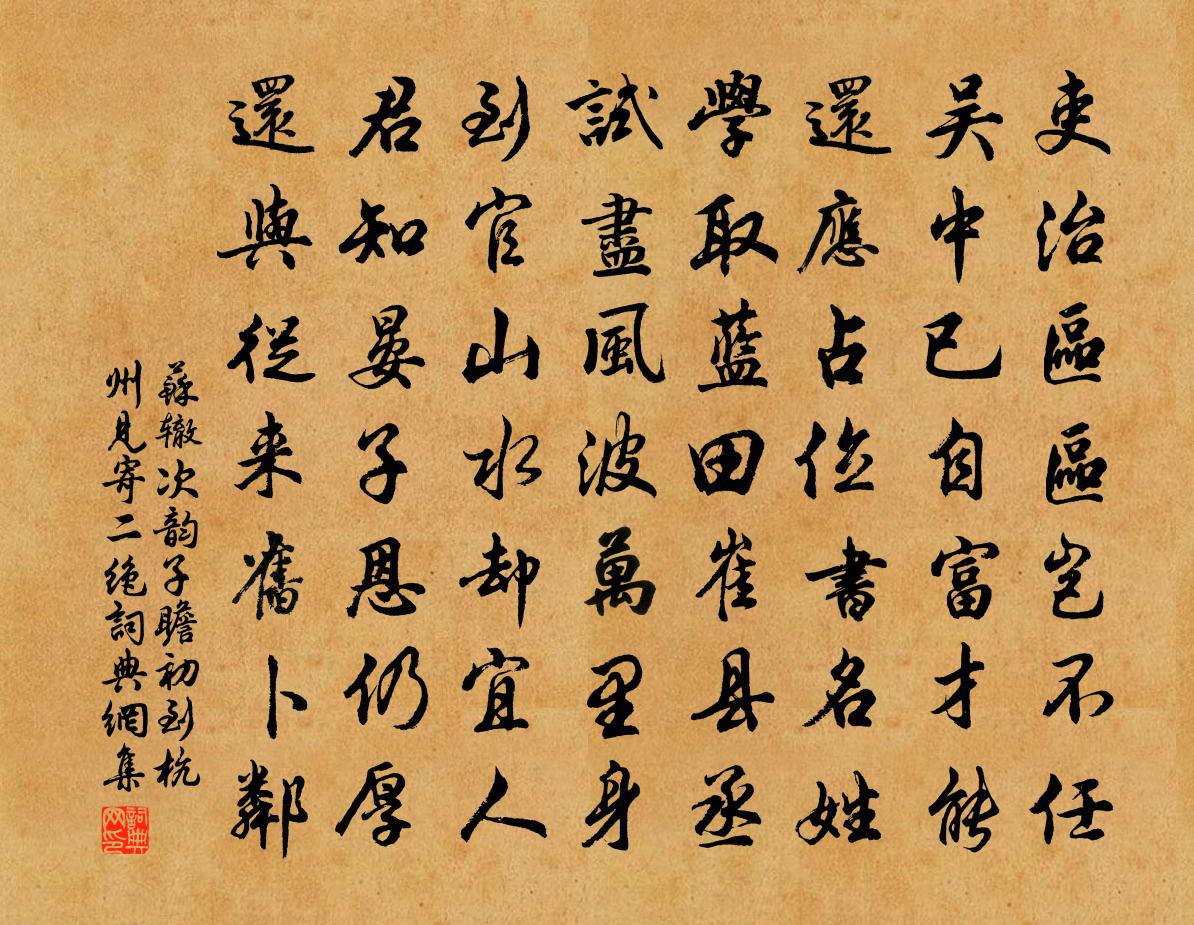 吏治區區豈不任
吴中已自富才能
還應占位書名姓
學取藍田崔县丞
試盡風波萬里身
到官山水却宜人
君知晏子恩仍厚
還與從来舊卜鄰
蘇辙次韵子瞻初到杭
州見寄二绝詞典網集
詞典
网印